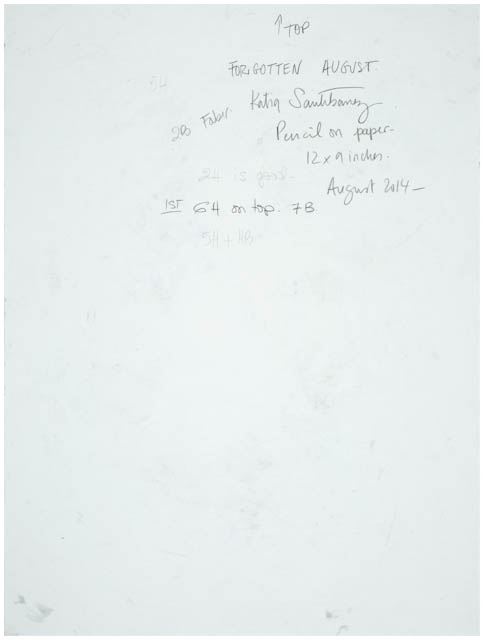 ↑ TOP
FORGOTTEN AUGUST.
5H
Katia Santibanez
2B Faber.
Pencil on paper-
12 x 9 inches.
24 is good-
August 2014 —
1ST 6H on top. 7B
5H + HB